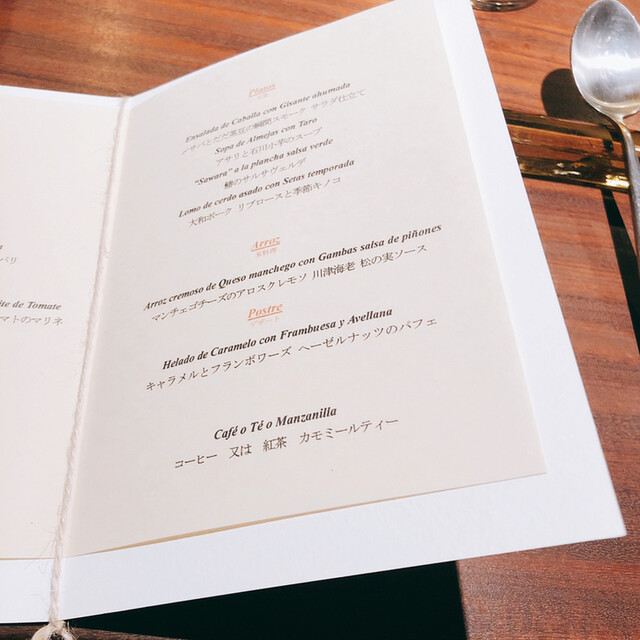 バリ
ite de Tomate
マトのマリネ
Platos
Ensalada de Caballa con Gisante ahumada
サバとだだ茶豆の瞬間スモーク サラダ仕立て
Sopa de Almejas con Taro
アサリと石川小芋のスープ
"Sawara" a la plancha salsa verde
鰆のサルサヴェルデ
Lomo de cerdo asado con Setas temporada
大和ポーク リブロースと季節キノコ
Arroz
米料理
Arroz cremoso de Queso manchego con Gambas salsa de piñones
マンチェゴチーズのアロスクレモソ 川津海老 松の実ソース
Postre
デザート
Helado de Caramelo con Frambuesa y Avellana
キャラメルとフランボワーズ ヘーゼルナッツのパフェ
Café o Té o Manzanilla
コーヒー 又は 紅茶 カモミールティー